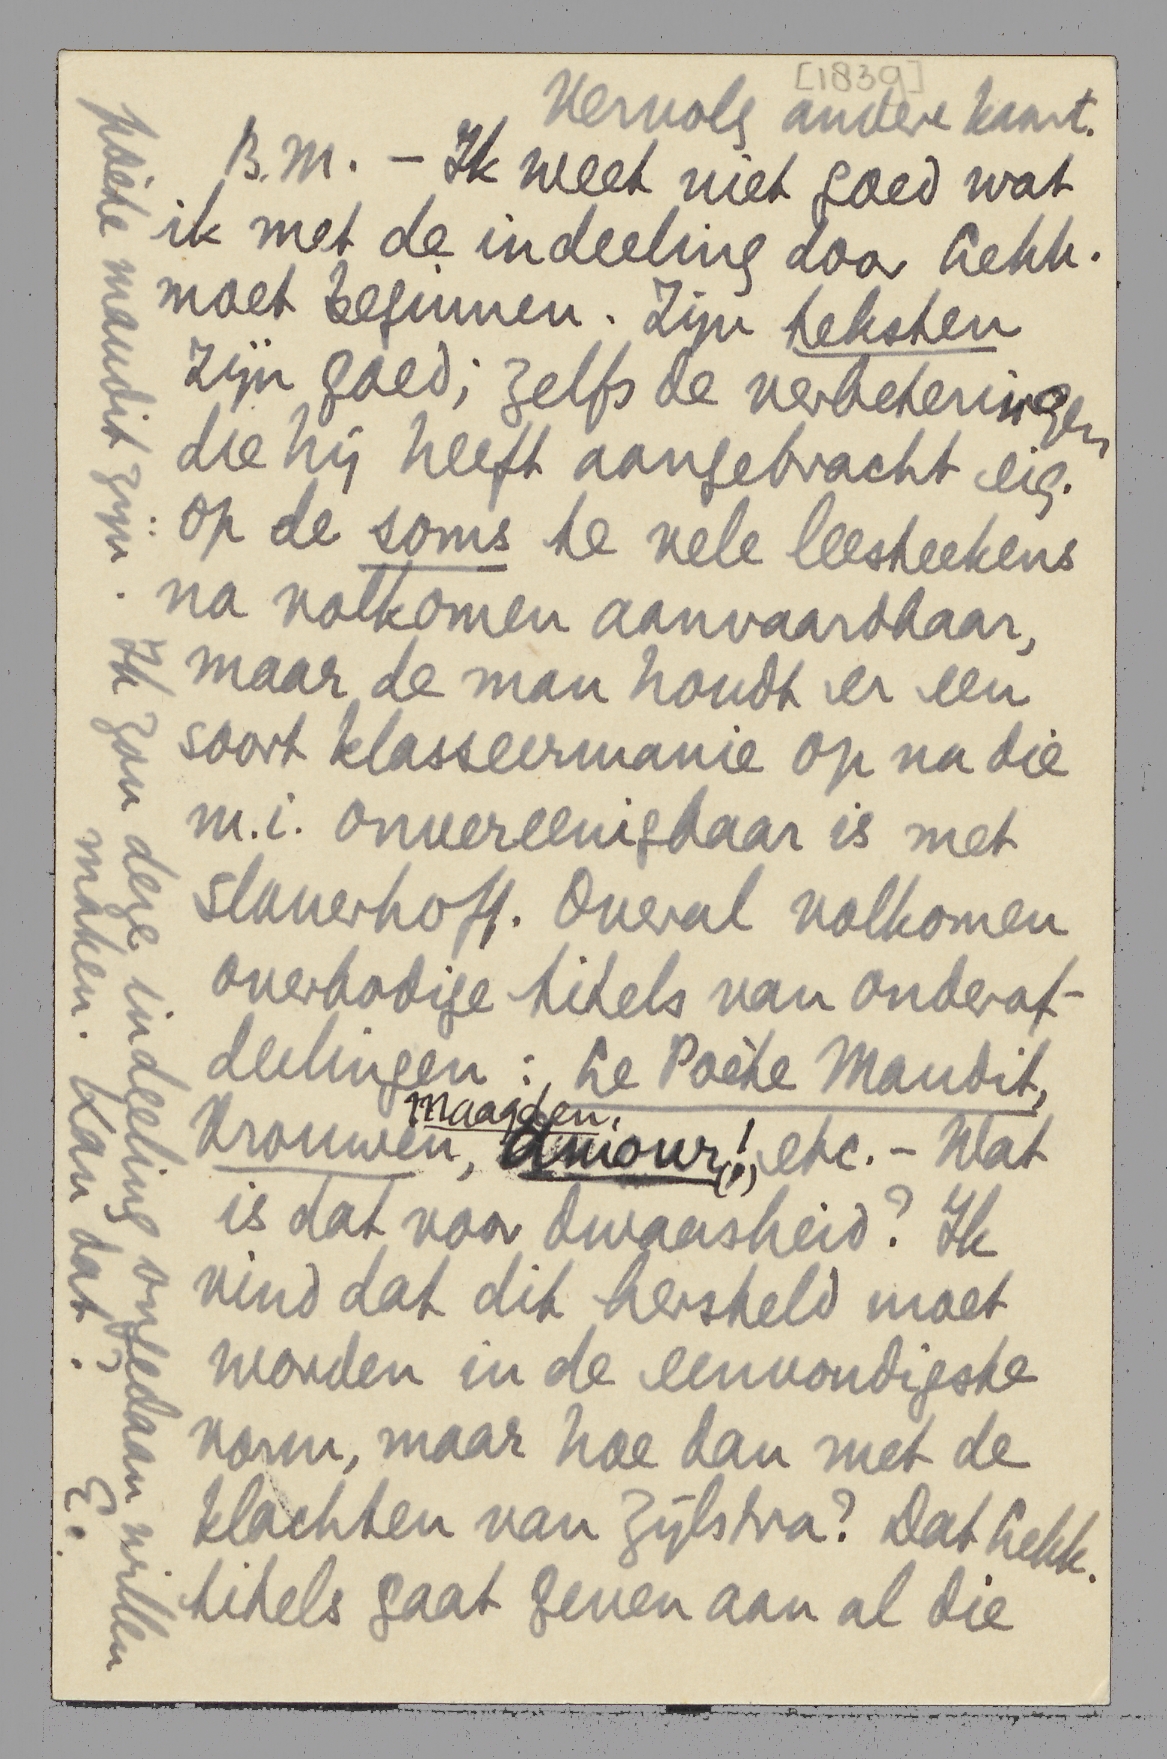 [1839]
Vervolg andere kaart.
B.M. – Ik weet niet goed wat
ik met de indeeling door Lekk.
moet beginnen. Zijn teksten
zijn goed; zelfs de verbeteringen
die hij heeft aangebracht zijn,
op de soms te vele leesteekens
na volkomen aanvaardbaar,
maar de man houdt er een
soort klasseermanie op na die
m.i. onvereenigbaar is met
Slauerhoff. Overal volkomen
overbodige titels van onderaf-
deelingen: Le Poète Maudit,
Maagden,
Vrouwen, Amour! (!) etc. – Wat
is dat voor dwaasheid? Ik
vind dat dit hersteld moet
worden in de eenvoudigste
vorm, maar hoe dan met de
klachten van Zijlstra? Dat Lekk.
titels gaat geven aan al die
poète maudit zijn. Ik zou deze indeeling ongedaan willen
maken. Kan dat?
E.